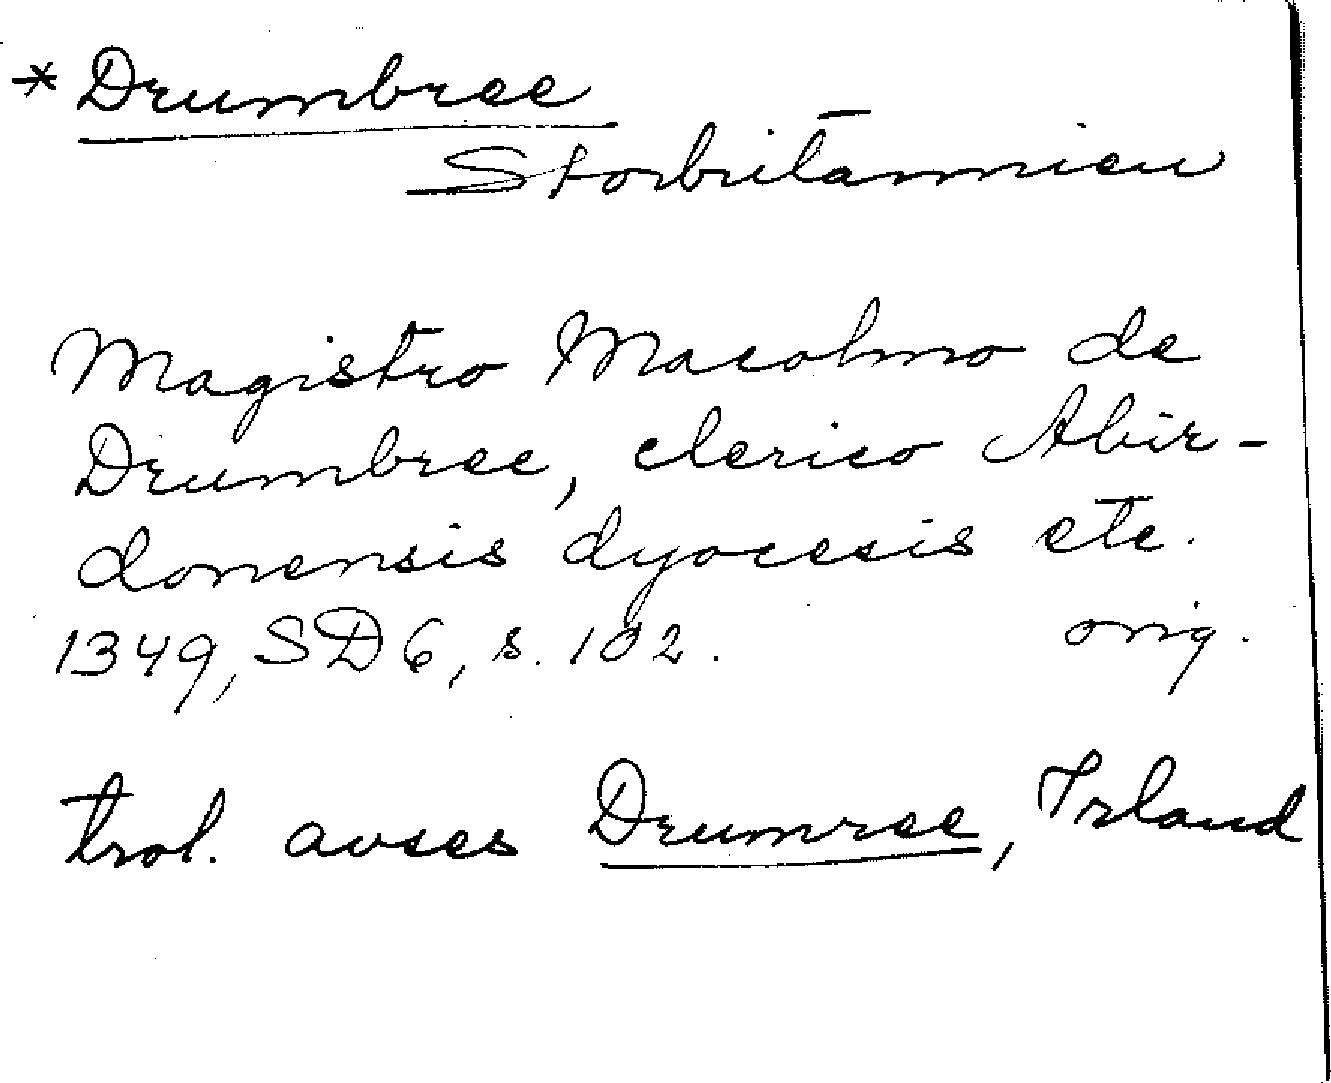 *Drumbree
Storbritannien
Magistro Macolmo de
Drumbree, clerico Abir-
donensis dyocesis etc.
1349, SD 6, s. 102. orig.
trol. avses Drumree, Irland